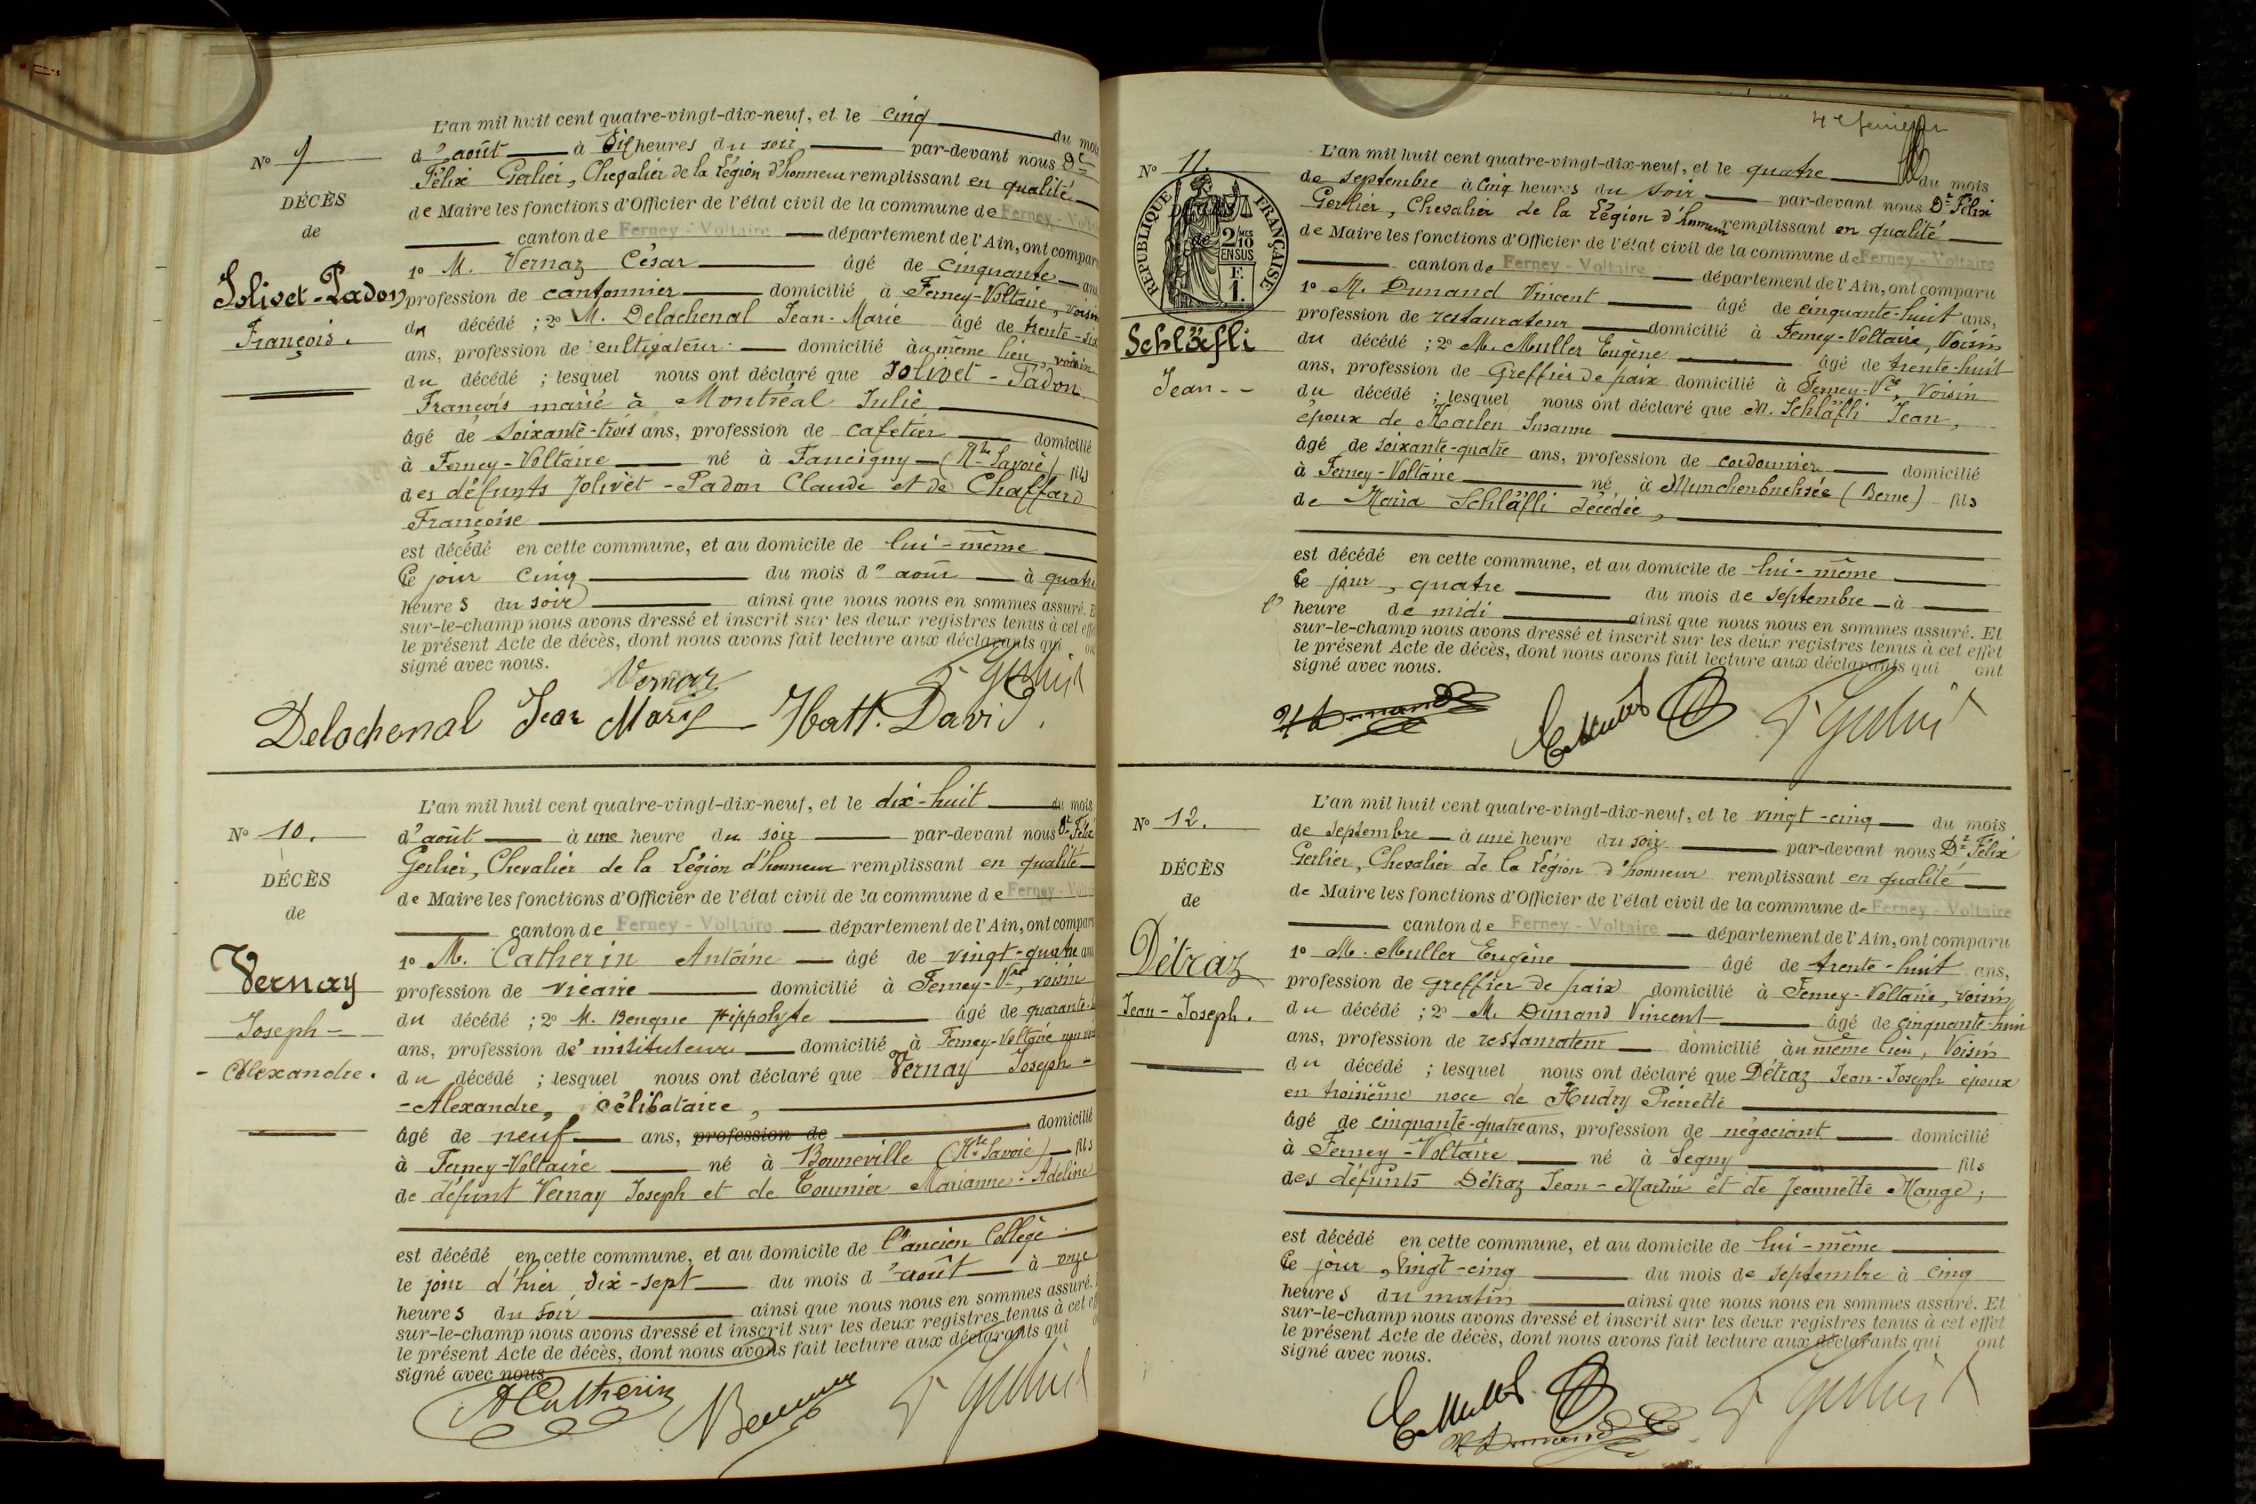 L'an mil huit cent quatre-vingt-dix-neuf, et le cinq du mois
N° 9
d'août à six heures du soir par-devant nous Dr
Félix Gerlier, Chevalier de la Légion d'honneur remplissant en qualité
DÉCÈS
de Maire les fonctions d'Officier de l'état civil de la commune de Ferney-Voltaire
de
canton de Ferney-Voltaire département de l'Ain, ont comparu
1° M. Vernaz César âgé de cinquante ans
Jolivet-Padon
profession de cantonnier domicilié à Ferney-Voltaire, voisin
du décédé ; 2° M. Delachenal Jean-Marie âgé de trente-six
François.
ans, profession de cultivateur domicilié au même lieu, voisin
du décédé ; lesquel nous ont déclaré que Jolivet-Padon
François marié à Montréal Julie
âgé de soixante-trois ans, profession de cafetier domicilié
à Ferney-Voltaire né à Faucigny (Hte Savoie) fils
des défunts Jolivet-Padon Claude et de Chaffard
Françoise
est décédé en cette commune, et au domicile de lui-même
Ce jour cinq du mois d'août à quatre
heures du soir ainsi que nous nous en sommes assuré. Et
sur-le-champ nous avons dressé et inscrit sur les deux registres tenus à cet effet
le présent Acte de décès, dont nous avons fait lecture aux déclarants qui ont
signé avec nous.
Vernaz F Gerlier
Delachenal Jean Marie Hatt. David.
L'an mil huit cent quatre-vingt-dix-neuf, et le dix-huit du mois
N° 10.
d'août à une heure du soir par-devant nous Dr Félix
Gerlier, Chevalier de la Légion d'honneur remplissant en qualité
DÉCÈS
de Maire les fonctions d'Officier de l'état civil de la commune de Ferney-Voltaire
de
canton de Ferney-Voltaire département de l'Ain, ont comparu
1° M. Catherin Antoine âgé de vingt-quatre ans
Vernay
profession de vicaire domicilié à Ferney-Vre, voisin
Joseph-
du décédé ; 2° M. Benque Hippolyte âgé de quarante-
ans, profession d'instituteur domicilié à Ferney-Voltaire non
-Alexandre.
du décédé ; lesquel nous ont déclaré que Vernay Joseph-
-Alexandre, célibataire,
âgé de neuf ans, profession de domicilié
à Ferney-Voltaire né à Bonneville (Hte Savoie) fils
de défunt Vernay Joseph et de Tournier Marianne-Adeline
est décédé en cette commune, et au domicile de l'ancien Collège
le jour d'hier dix-sept du mois d'août à onze
heures du soir ainsi que nous nous en sommes assuré.
sur-le-champ nous avons dressé et inscrit sur les deux registres tenus à cet effet
le présent Acte de décès, dont nous avons fait lecture aux déclarants qui
signé avec nous
A Catherin F Gerlier
4e feuillet
L'an mil huit cent quatre-vingt-dix-neuf, et le quatre du mois
N° 11.
de septembre à cinq heures du soir par-devant nous Dr Félix
Gerlier, Chevalier de la Légion d'honneur remplissant en qualité
DÉCÈS
de Maire les fonctions d'Officier de l'état civil de la commune de Ferney-Voltaire
de
RÉPUBLIQUE FRANÇAISE
2/10 EN SUS
F.
1.
canton de Ferney-Voltaire département de l'Ain, ont comparu
1° M. Dunand Vincent âgé de cinquante-huit ans,
profession de restaurateur domicilié à Ferney-Voltaire, Voisin
Schläfli
du décédé ; 2° M. Muller Eugène âgé de trente-huit
Jean--
ans, profession de Greffier de paix domicilié à Ferney-Vre, Voisin
du décédé ; lesquel nous ont déclaré que M. Schläfli Jean,
époux de Susanne
âgé de soixante-quatre ans, profession de cordonnier domicilié
à Ferney-Voltaire né à Munchenbuchsée (Berne) fils
de Maria Schläfli décédée,
est décédé en cette commune, et au domicile de lui-même
Ce jour, quatre du mois de septembre à
l' heure de midi ainsi que nous nous en sommes assuré. Et
sur-le-champ nous avons dressé et inscrit sur les deux registres tenus à cet effet
le présent Acte de décès, dont nous avons fait lecture aux déclarants qui ont
signé avec nous.
V Dunand E Muller F Gerlier
L'an mil huit cent quatre-vingt-dix-neuf, et le vingt-cinq du mois
N° 12.
de septembre à une heure du soir par-devant nous Dr Félix
Gerlier, Chevalier de la Légion d'honneur remplissant en qualité
DÉCÈS
de Maire les fonctions d'Officier de l'état civil de la commune de Ferney-Voltaire
de
canton de Ferney-Voltaire département de l'Ain, ont comparu
1° M. Muller Eugène âgé de trente-huit ans,
Détraz
profession de greffier de paix domicilié à Ferney-Voltaire, voisin
Jean-Joseph.
du décédé ; 2° M. Dunand Vincent âgé de cinquante-huit
ans, profession de restaurateur domicilié au même lieu, Voisin
du décédé ; lesquel nous ont déclaré que Détraz Jean-Joseph époux
en troisième noce de Hudry Pierrette
âgé de cinquante-quatre ans, profession de négociant domicilié
à Ferney-Voltaire né à Segny fils
des défunts Détraz Jean-Martin et de Jeannette Mange;
est décédé en cette commune, et au domicile de lui-même
Ce jour, vingt-cinq du mois de septembre à cinq
heures du matin ainsi que nous nous en sommes assuré. Et
sur-le-champ nous avons dressé et inscrit sur les deux registres tenus à cet effet
le présent Acte de décès, dont nous avons fait lecture aux déclarants qui ont
signé avec nous.
E Muller F Gerlier
V Dunand